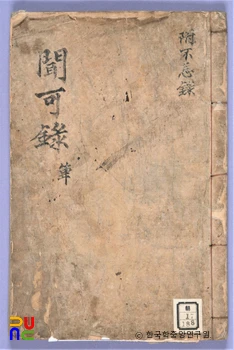 附不忘錄
聞可錄 單
ⓒ 한국학중앙연구원